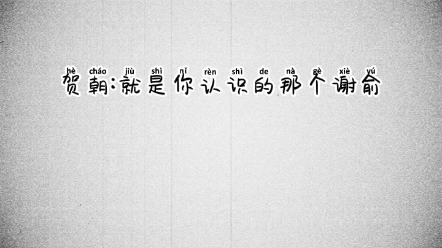 hè cháo jiù shì nǐ rèn shì de nà gè xiè yú
贺朝:就是你认识的那个谢俞